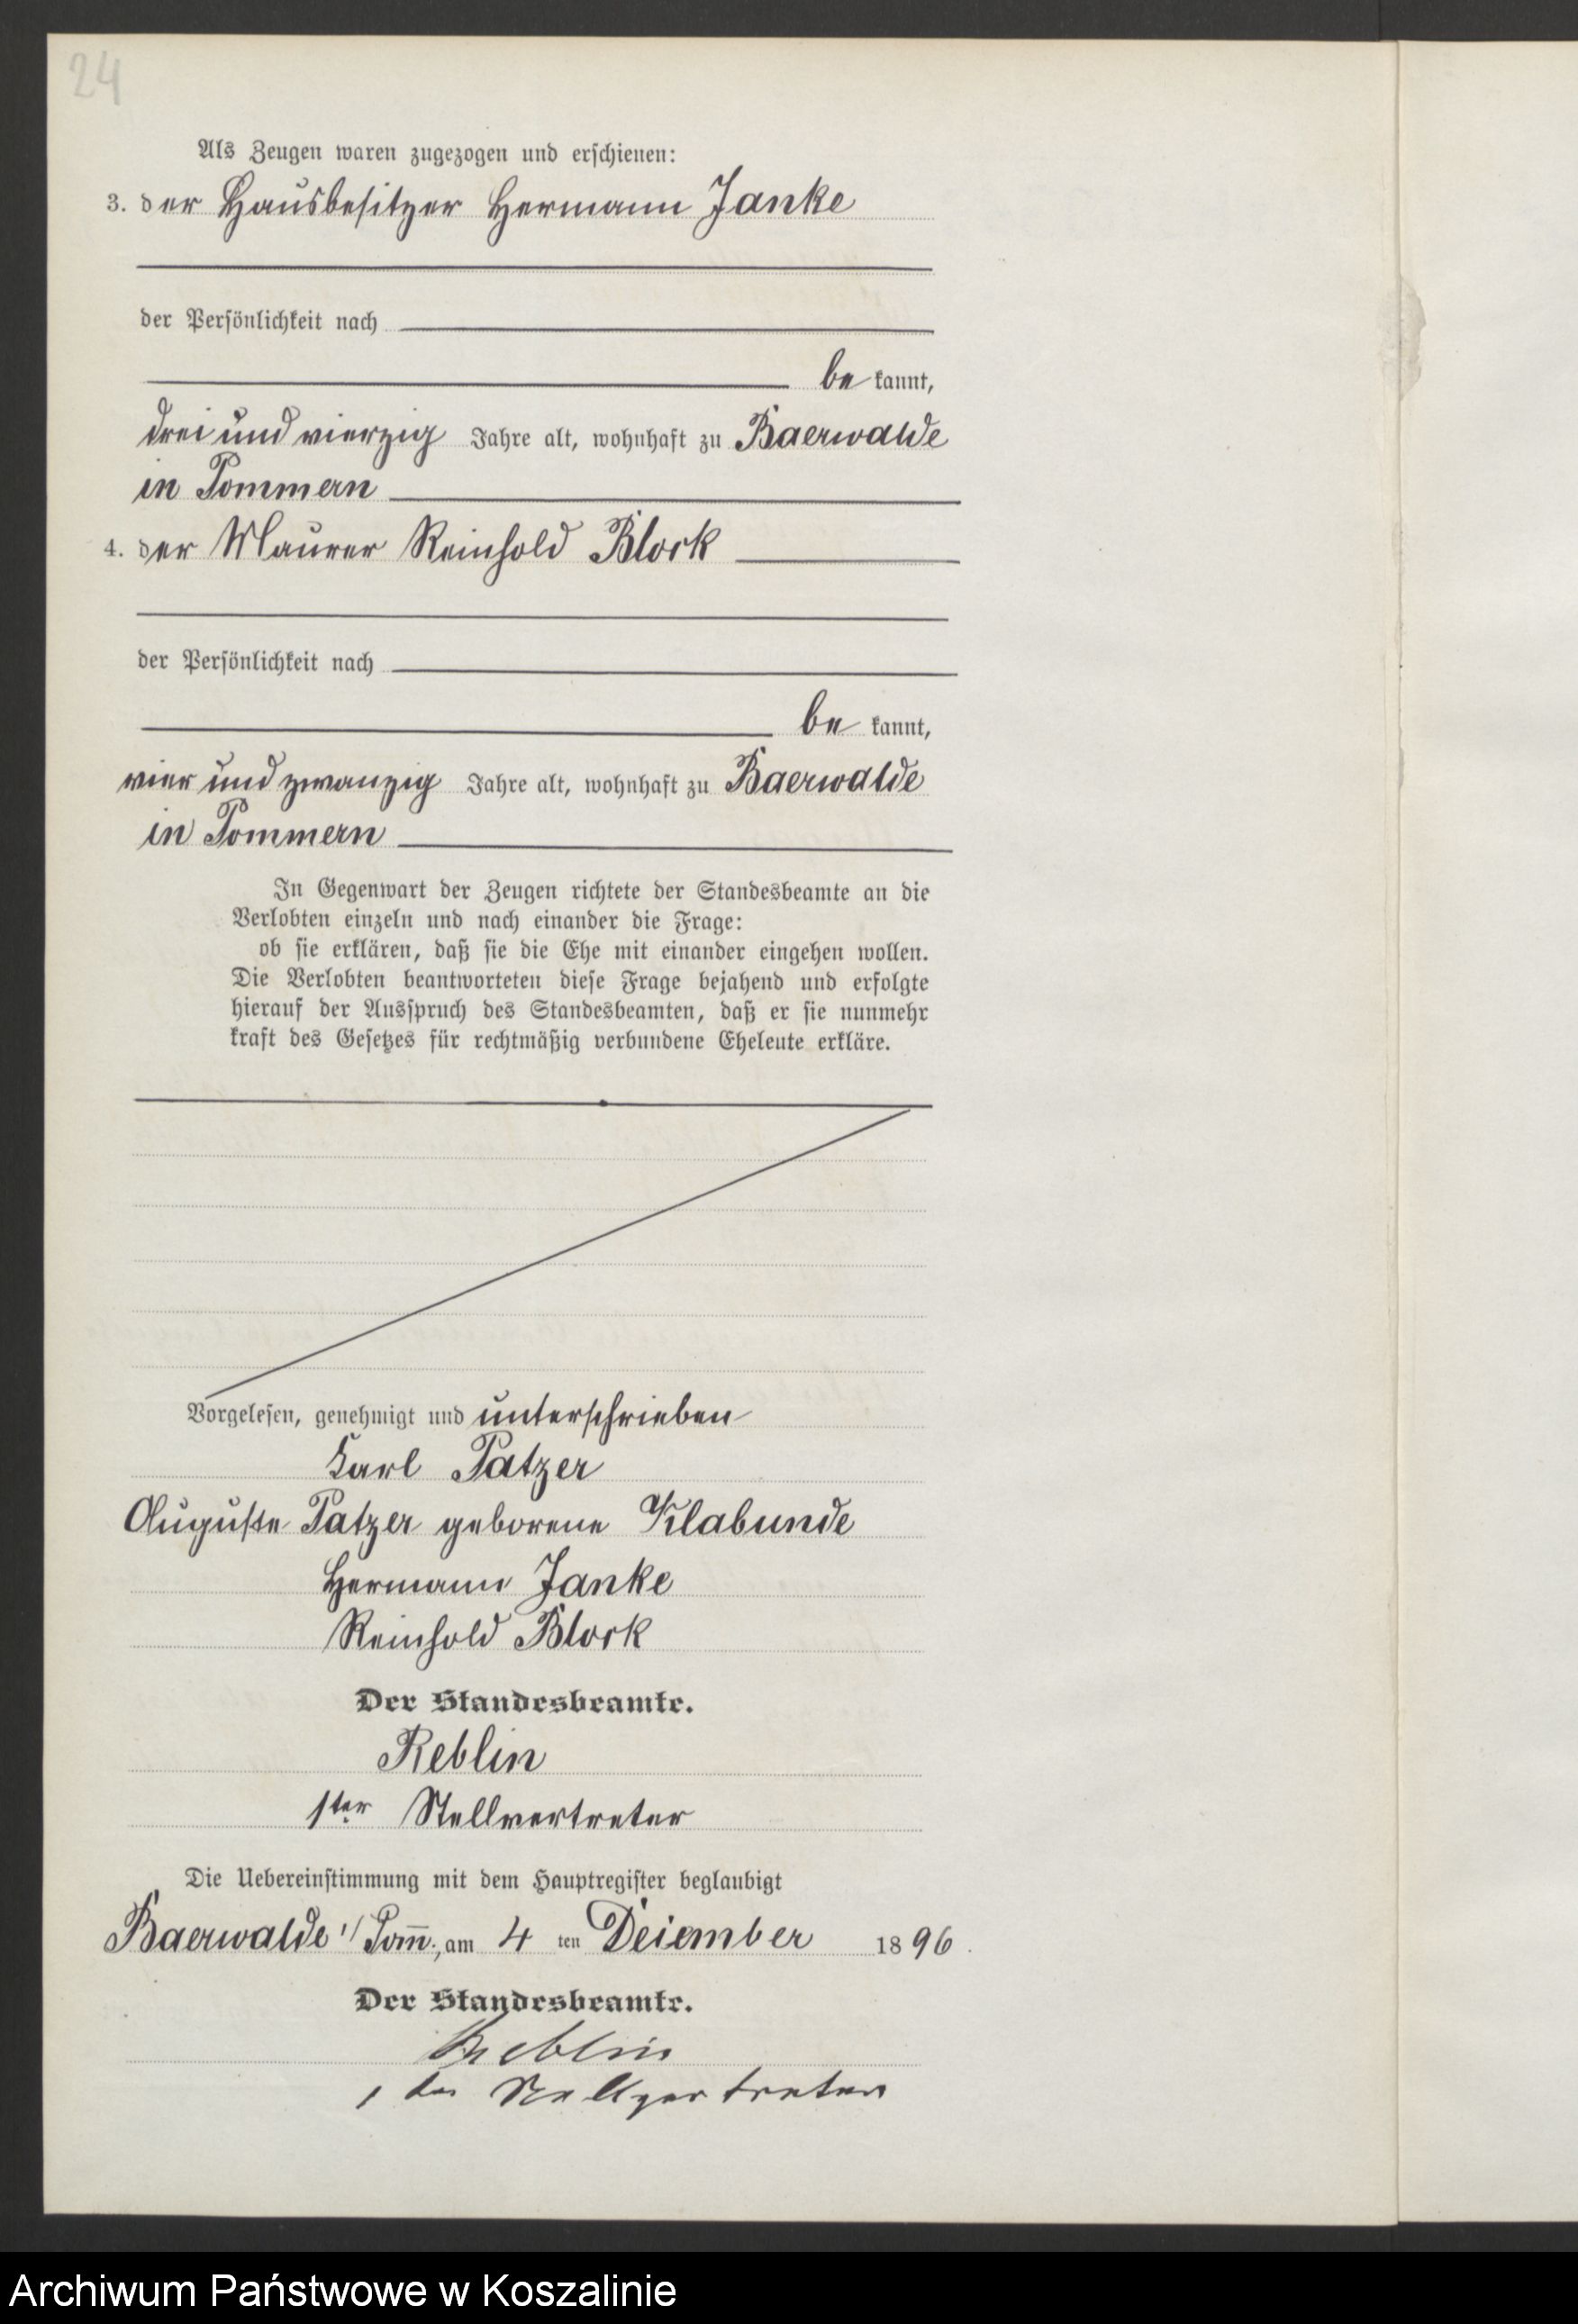 24
Als Zeugen waren zugezogen und erschienen:
3. der Hausbesitzer Hermann Janke
der Persönlichkeit nach
be kannt,
drei und vierzig Jahre alt, wohnhaft zu Baerwalde
in Pommern
4. der Maurer Reinhold Block
der Persönlichkeit nach
be kannt,
vier und zwanzig Jahre alt, wohnhaft zu Baerwalde
in Pommern
In Gegenwart der Zeugen richtete der Standesbeamte an die
Verlobten einzeln und nach einander die Frage:
ob sie erklären, daß sie die Ehe mit einander eingehen wollen.
Die Verlobten beantworteten diese Frage bejahend und erfolgte
hierauf der Ausspruch des Standesbeamten, daß er sie nunmehr
kraft des Gesetzes für rechtmäßig verbundene Eheleute erkläre.
Vorgelesen, genehmigt und unterschrieben
Karl Patzer
Auguste Patzer geborene Klabunde
Hermann Janke
Reinhold Block
Der Standesbeamte.
Reblin
1ter Stellvertreter
Die Uebereinstimmung mit dem Hauptregister beglaubigt
Baerwalde i/ Pom̅., am 4 ten Dezember 1896.
Der Standesbeamte.
Reblin
1ter Stellvertreter
Archiwum Państwowe w Koszalinie